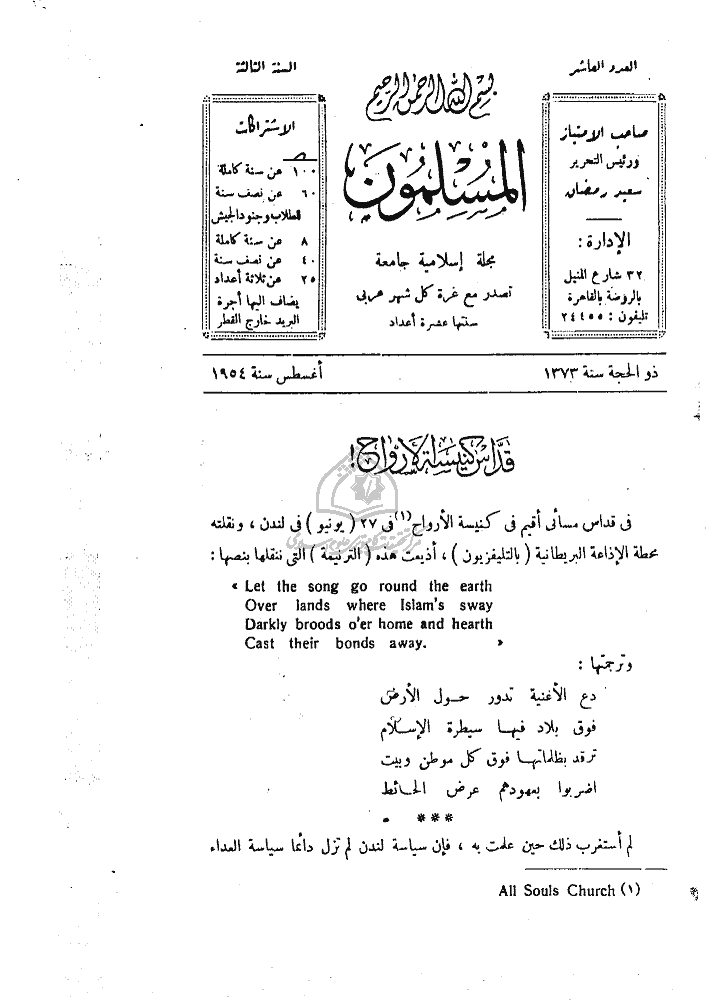 العدد العاشر
السنة الثالثة
صاحب الامتياز
ورئيس التحرير
سعيد رمضان
الإدارة :
٣٢ شارع المنيل
بالروضة بالقاهرة
تليفون : ٢٤٤٥٥
بسم الله الرحمن الرحيم
المسلمون
مجلة إسلامية جامعة
تصدر مع غرة كل شهر عربى
سنتها عشرة أعداد
الاشتراكات
١٠٠ عن سنة كاملة
٦٠ عن نصف سنة
للطلاب وجنود الجيش
٨٠ عن سنة كاملة
٤٠ عن نصف سنة
٢٥ عن ثلاثة أعداد
يضاف اليها أجرة
البريد خارج القطر
ذو الحجة سنة ١٣٧٣
أغسطس سنة ١٩٥٤
قداس كنيسة الأرواح !
فى قداس مسائى أقيم فى كنيسة الأرواح (١) فى ٢٧ ( يونيو ) فى لندن ، ونقلته
محطة الإذاعة البريطانية ( بالتليفزيون ) ، أذيعت هذه ( الترنيمة ) التى ننقلها بنصها :
« Let the song go round the earth
Over lands where Islam's sway
Darkly broods o'er home and hearth
Cast their bonds away. »
وترجمتها :
دع الأغنية تدور حول الأرض
فوق بلاد فيها سيطرة الإسلام
ترقد بظلماتها فوق كل موطن وبيت
اضربوا بعهودهم عرض الحائط
***
لم أستغرب ذلك حين علمت به ، فإن سياسة لندن لم تزل دائما سياسة العداء
(١) All Souls Church